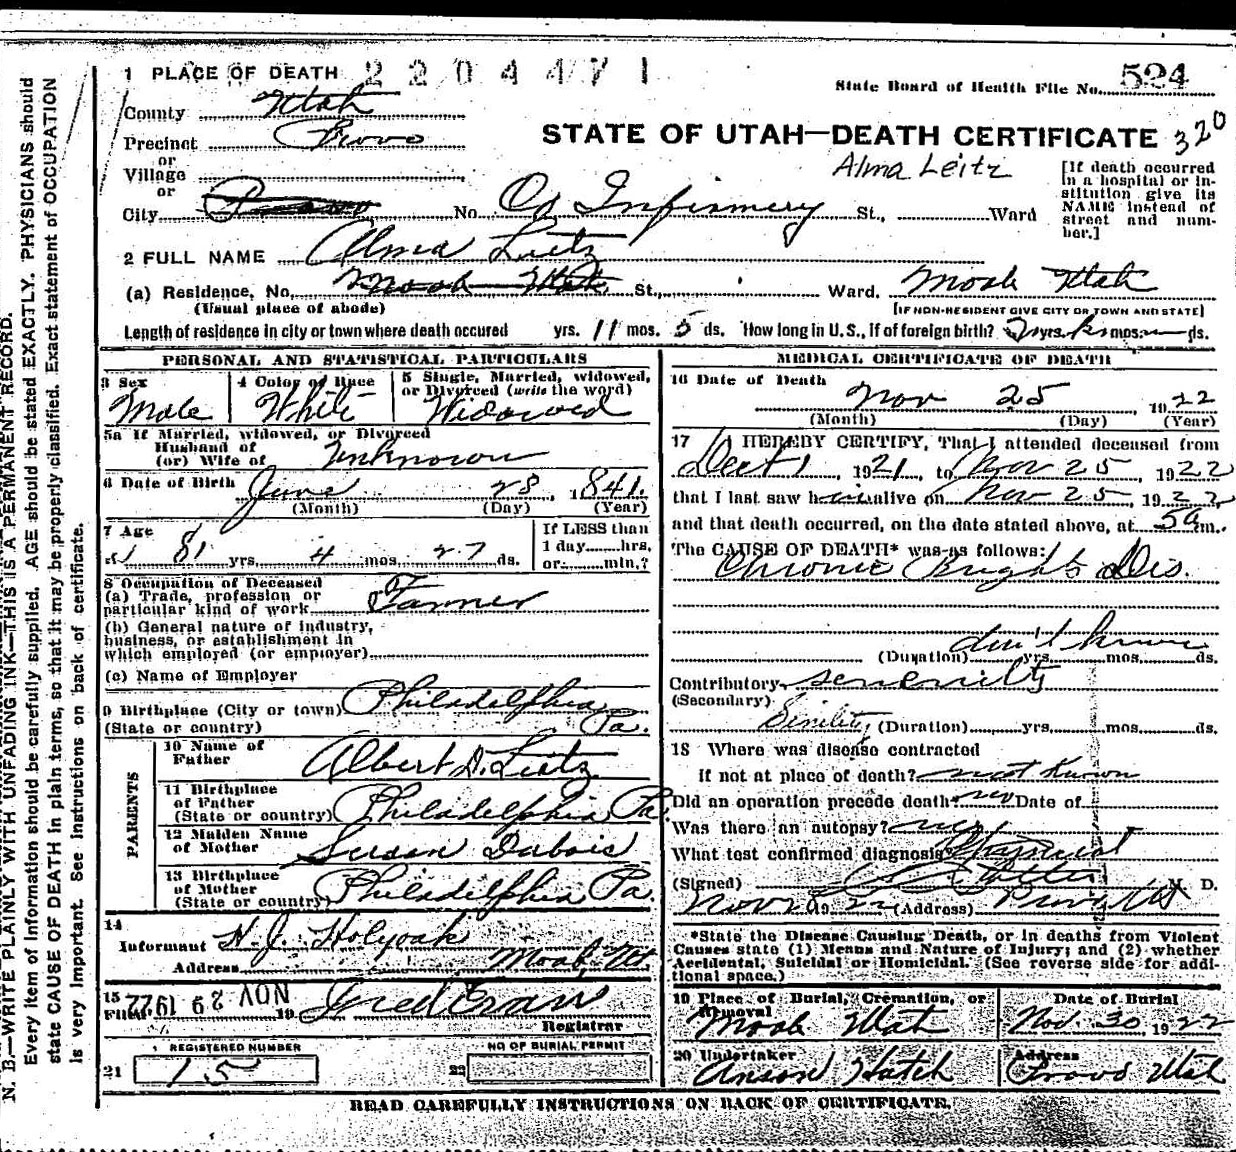 1 PLACE OF DEATH 2204471
State Board of Health File No. 524
County Utah
320
Precinct Provo
STATE OF UTAH—DEATH CERTIFICATE
or
Village
or
Alma Leitz
[If death occurred in a hospital or institution give its NAME instead of street and number.]
City Provo No. Infirmery St., Ward
2 FULL NAME Alma Leitz
(a) Residence, No. Moab Utah St., Ward. Moab Utah
(Usual place of abode) [IF NON-RESIDENT GIVE CITY OR TOWN AND STATE]
Length of residence in city or town where death occured yrs. 11 mos. 5 ds. How long in U.S., if of foreign birth? yrs. mos. ds.
PERSONAL AND STATISTICAL PARTICULARS
3 Sex
Male
4 Color or Race
White
5 Single, Married, widowed,
or Divorced (write the word)
Widowed
5a If Married, widowed, or Divorced
Husband of
(or) Wife of Unknown
6 Date of Birth June 28, 1841.
(Month) (Day) (Year)
7 Age
81 yrs. 4 mos. 27 ds.
If LESS than
1 day......hrs.
or......min.?
8 Occupation of Deceased
(a) Trade, profession or
particular kind of work Farmer
(b) General nature of industry,
business, or establishment in
which employed (or employer)
(c) Name of Employer
9 Birthplace (City or town) Philadelphia
(State or country) Pa.
PARENTS
10 Name of
Father Albert D. Lietz
11 Birthplace
of Father
(State or country) Philadelphia Pa.
12 Maiden Name
of Mother Susan Dubois
13 Birthplace
of Mother
(State or country) Philadelphia Pa.
14
Informant H. J. Holyoak
Address Moab, Ut
15
Filed NOV 29 1922 19 Fred Evans
Registrar
REGISTERED NUMBER
21 15
NO OF BURIAL PERMIT
22
MEDICAL CERTIFICATE OF DEATH
16 Date of Death
Nov 25, 1922
(Month) (Day) (Year)
17 I HEREBY CERTIFY, That I attended deceased from
Dect 1, 1921, to Nov 25, 1922
that I last saw him alive on Nov 25, 1922,
and that death occurred, on the date stated above, at 5a m.
The CAUSE OF DEATH* was as follows:
Chronic Brights Dis.
don't know
(Duration) yrs. mos. ds.
Contributory
(Secondary)
Sinility (Duration) yrs. mos. ds.
18 Where was disease contracted
If not at place of death? not known
Did an operation precede death? no Date of
Was there an autopsy? no
What test confirmed diagnosis?
(Signed) M. D.
Nov 28 19 22 (Address) Provo Ut
*State the Disease Causing Death, or in deaths from Violent
Causes state (1) Means and Nature of Injury; and (2) whether
Accidental, Suicidal or Homicidal. (See reverse side for addi-
tional space.)
19 Place of Burial, Cremation, or
Removal
Moab Utah
Date of Burial
Nov. 30 1922
20 Undertaker
Anson Hatch
Address
Provo Utah
READ CAREFULLY INSTRUCTIONS ON BACK OF CERTIFICATE.
N. B.—WRITE PLAINLY WITH UNFADING INK—THIS IS A PERMANENT RECORD.
Every item of information should be carefully supplied. AGE should be stated EXACTLY. PHYSICIANS should
state CAUSE OF DEATH in plain terms, so that it may be properly classified. Exact statement of OCCUPATION
is very important. See instructions on back of certificate.